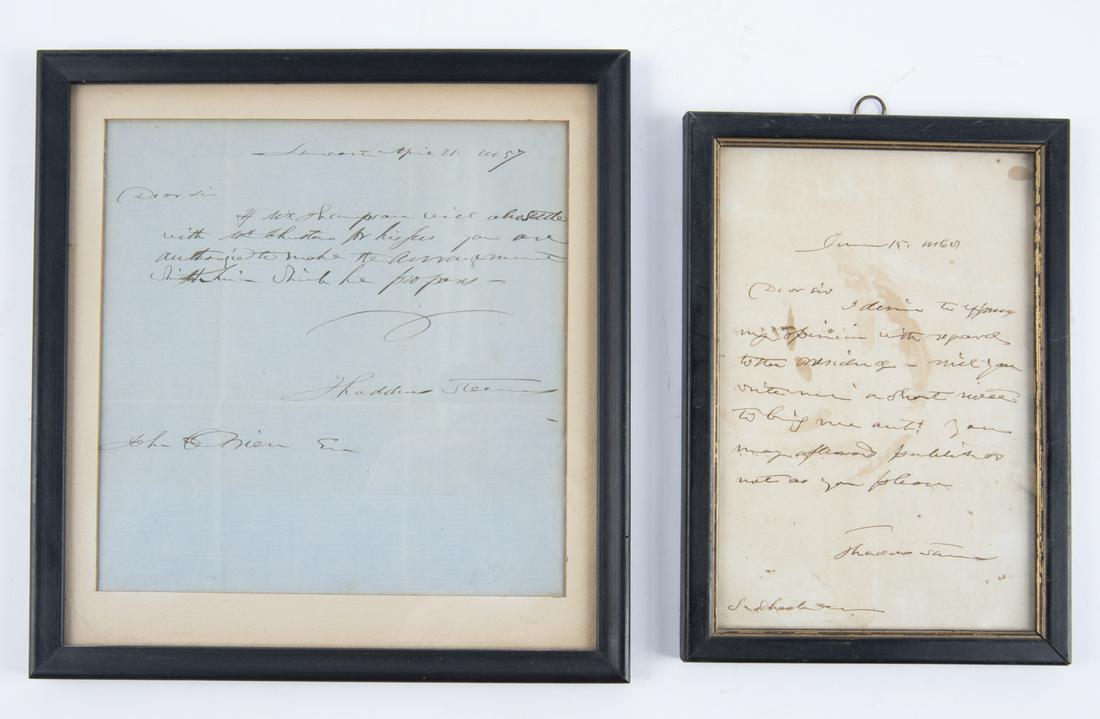 Lancaster April 21. 1857
Dear Sir
If Mr Thompson will also settle
with Mr for his fees you are
authorized to make the arrangement
which he proposes —
Thaddeus Stevens
John O'Brien Esq
June 15. 1868
Dear Sir
I desire to express
my opinion with regard
to the — will you
write me a short note
to bring me out? You
may afterward publish or
not as you please
Thaddeus Stevens
S.